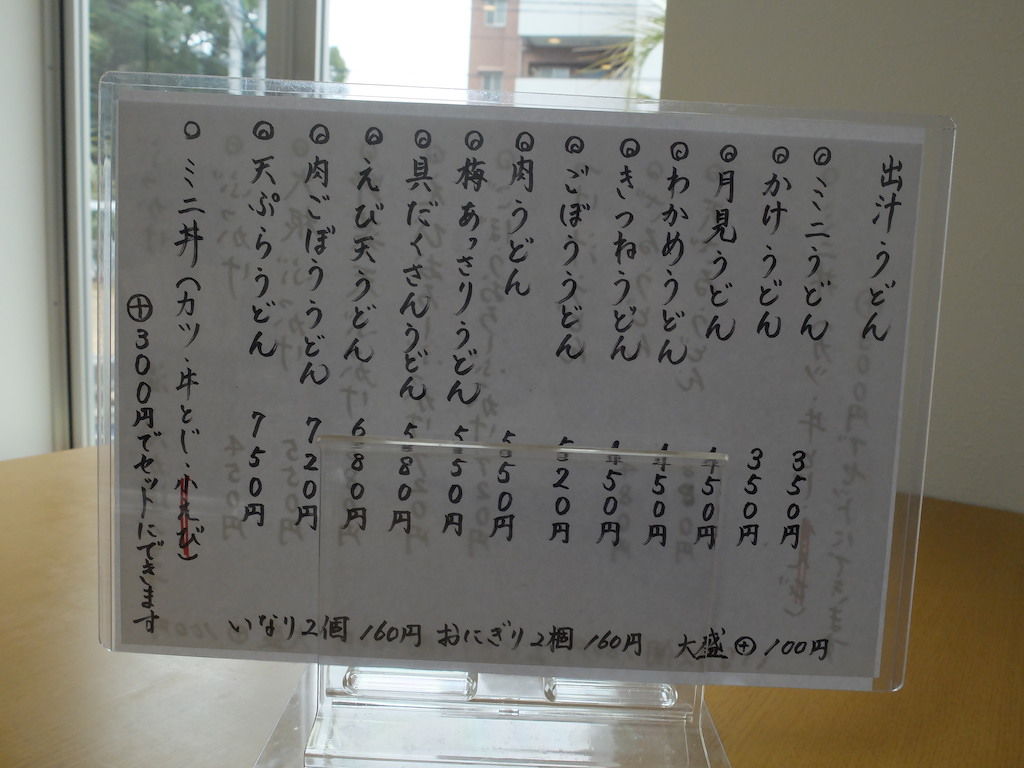 出汁うどん
◎ミニうどん 350円
◎かけうどん 350円
◎月見うどん 450円
◎わかめうどん 450円
◎きつねうどん 450円
◎ごぼううどん 520円
◎肉うどん 550円
◎梅あっさりうどん 550円
◎具だくさんうどん 580円
◎えび天うどん 680円
◎肉ごぼううどん 720円
◎天ぷらうどん 750円
○ミニ丼(カツ、牛とじ、小えび)
⊕300円でセットにできます
いなり2個 160円 おにぎり2個 160円 大盛⊕100円